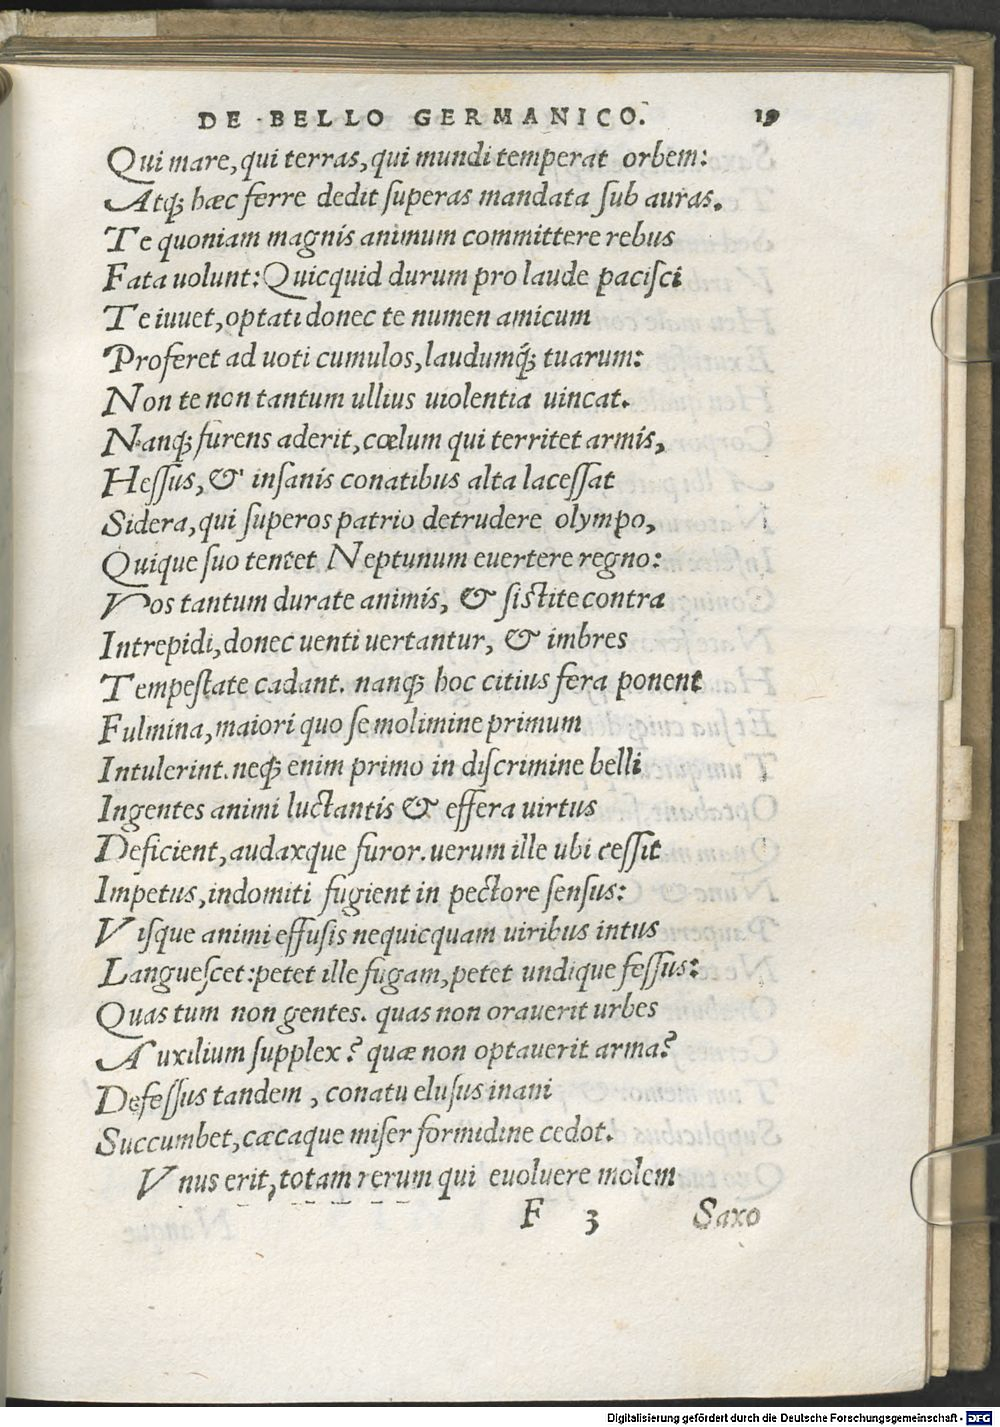 DE BELLO GERMANICO. 19
Qui mare, qui terras, qui mundi temperat orbem:
Atq; hæc ferre dedit superas mandata sub auras.
Te quoniam magnis animum committere rebus
Fata uolunt: Quicquid durum pro laude pacisci
Te iuuet, optati donec te numen amicum
Proferet ad uoti cumulos, laudumq́; tuarum:
Non te non tantum ullius uiolentia uincat.
Nanq; furens aderit, cœlum qui territet armis,
Hessus, & insanis conatibus alta lacessat
Sidera, qui superos patrio detrudere olympo,
Quique suo tentet Neptunum euertere regno:
Vos tantum durate animis, & sistite contra
Intrepidi, donec uenti uertantur, & imbres
Tempestate cadant. nanq; hoc citius fera ponent
Fulmina, maiori quo se molimine primum
Intulerint. neq; enim primo in discrimine belli
Ingentes animi luctantis & effera uirtus
Deficient, audaxque furor. uerum ille ubi cessit
Impetus, indomiti fugient in pectore sensus:
Visque animi effusis nequicquam uiribus intus
Languescet: petet ille fugam, petet undique fessus:
Quas tum non gentes. quas non orauerit urbes
Auxilium supplex? quæ non optauerit arma?
Defessus tandem, conatu elusus inani
Succumbet, cæcaque miser formidine cedot.
Vnus erit, totam rerum qui euoluere molem
F 3 Saxo
Digitalisierung gefördert durch die Deutsche Forschungsgemeinschaft - DFG